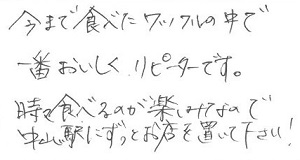 今まで食べたワッフルの中で
一番おいしく、リピーターです。
時々食べるのが楽しみなので
中山駅にずっとお店を置いて下さい!